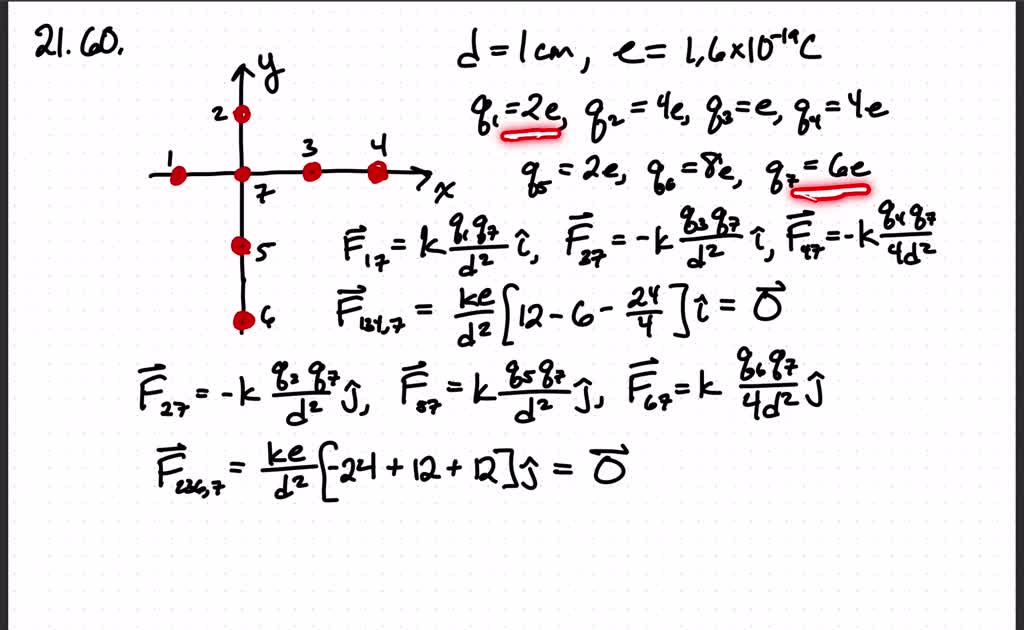 21.60.
d = 1 cm, e = 1,6×10⁻¹⁹C
y
2
q₁=2e, q₂ = 4e, q₃=e, q₄ = 4e
1 3 4
7 x
q₅ = 2e, q₆ = 8e, q₇ = 6e
5
F⃗₁₇ = k q₁q₇/d² î, F⃗₃₇ = -k q₃q₇/d² î, F⃗₄₇ = -k q₄q₇/4d²
6
F⃗₁₃₄,₇ = ke/d² [12 - 6 - 24/4] î = 0⃗
F⃗₂₇ = -k q₂q₇/d² ĵ, F⃗₅₇ = k q₅q₇/d² ĵ, F⃗₆₇ = k q₆q₇/4d² ĵ
F⃗₂₅₆,₇ = ke/d² [-24 + 12 + 12] ĵ = 0⃗